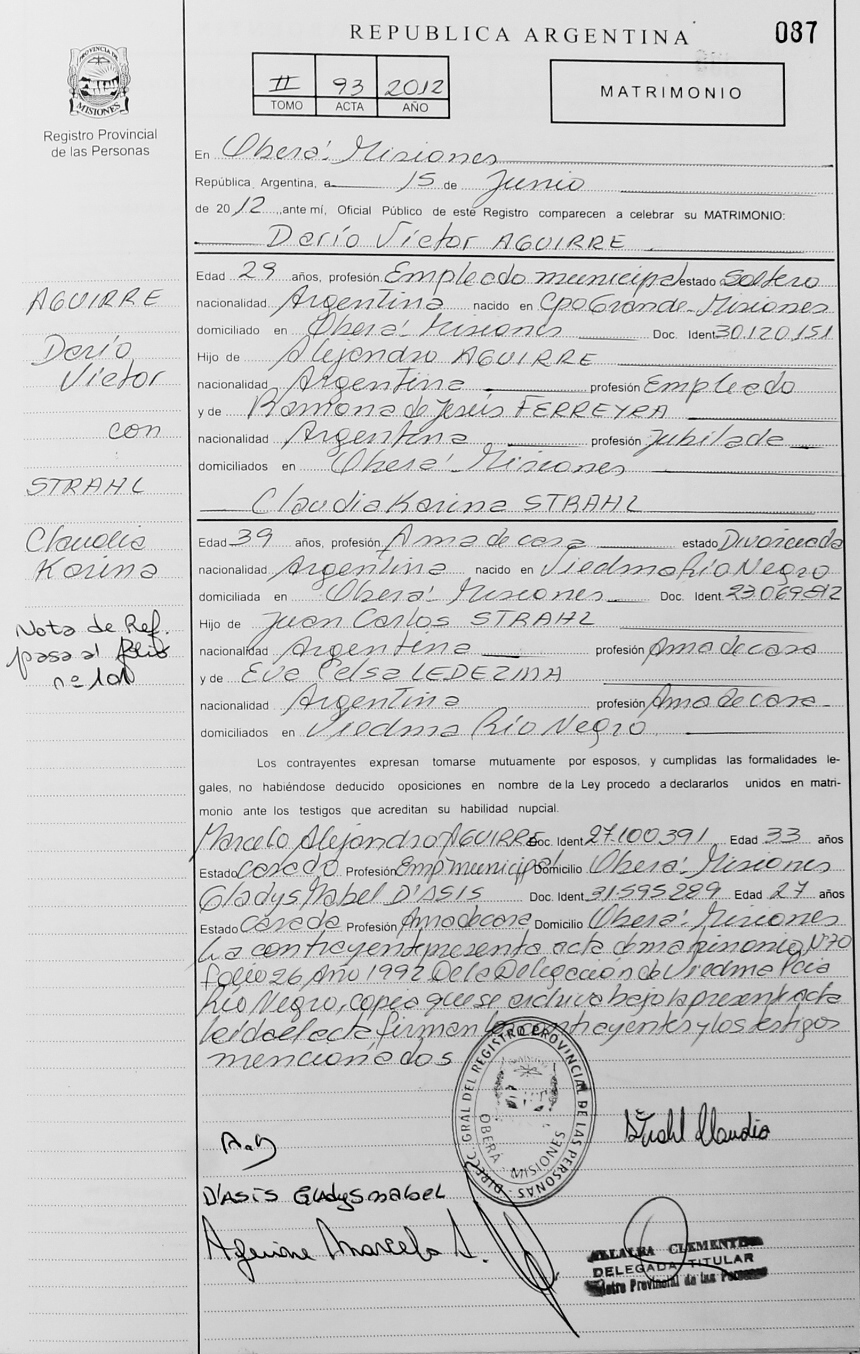 REPUBLICA ARGENTINA
087
PROVINCIA DE MISIONES
Registro Provincial
de las Personas
II 93 2012
TOMO ACTA AÑO
MATRIMONIO
En Oberá - Misiones
República Argentina, a 15 de Junio
de 2012, ante mí, Oficial Público de este Registro comparecen a celebrar su MATRIMONIO:
Darío Víctor AGUIRRE
Edad 29 años, profesión Empleado municipal estado Soltero
nacionalidad Argentina nacido en Cpo Grande - Misiones
domiciliado en Oberá - Misiones Doc. Ident 30.120.151
Hijo de Alejandro AGUIRRE
nacionalidad Argentina profesión Empleado
y de Ramona de Jesús FERREYRA
nacionalidad Argentina profesión Jubilada
domiciliados en Oberá - Misiones
Claudia Karina STRAHL
Edad 39 años, profesión Ama de casa estado Divorciada
nacionalidad Argentina nacido en Viedma Río Negro
domiciliada en Oberá - Misiones Doc. Ident. 23.069.812
Hijo de Juan Carlos STRAHL
nacionalidad Argentina profesión Ama de casa
y de Eva Celsa LEDEZMA
nacionalidad Argentina profesión Ama de casa
domiciliados en Viedma Río Negro
Los contrayentes expresan tomarse mutuamente por esposos, y cumplidas las formalidades le-
gales, no habiéndose deducido oposiciones en nombre de la Ley procedo a declararlos unidos en matri-
monio ante los testigos que acreditan su habilidad nupcial.
Marcelo Alejandro AGUIRRE Doc. Ident. 27.100.391 Edad 33 años
Estado Casado Profesión Emp municipal Domicilio Oberá - Misiones
Gladys Mabel D'ASIS Doc. Ident. 31.595.289 Edad 27 años
Estado Casada Profesión Ama de casa Domicilio Oberá - Misiones
La contrayente presenta acta de matrimonio N° 70
folio 26 Año 1992 De la Delegación de Viedma Pcia
Río Negro, copia que se archiva bajo la presente acta
leída el acta firman los contrayentes y los testigos
mencionados
AGUIRRE
Darío
Víctor
con
STRAHL
Claudia
Karina
Nota de Ref.
pasa al folio
nº 101
DIRECC. GRAL DEL REGISTRO PROVINCIAL DE LAS PERSONAS
OBERÁ - MISIONES
Strahl Claudia
D'ASIS GLADYS MABEL
Aguirre Marcelo A.
CLEMENTE
DELEGADA TITULAR
Registro Provincial de las Personas